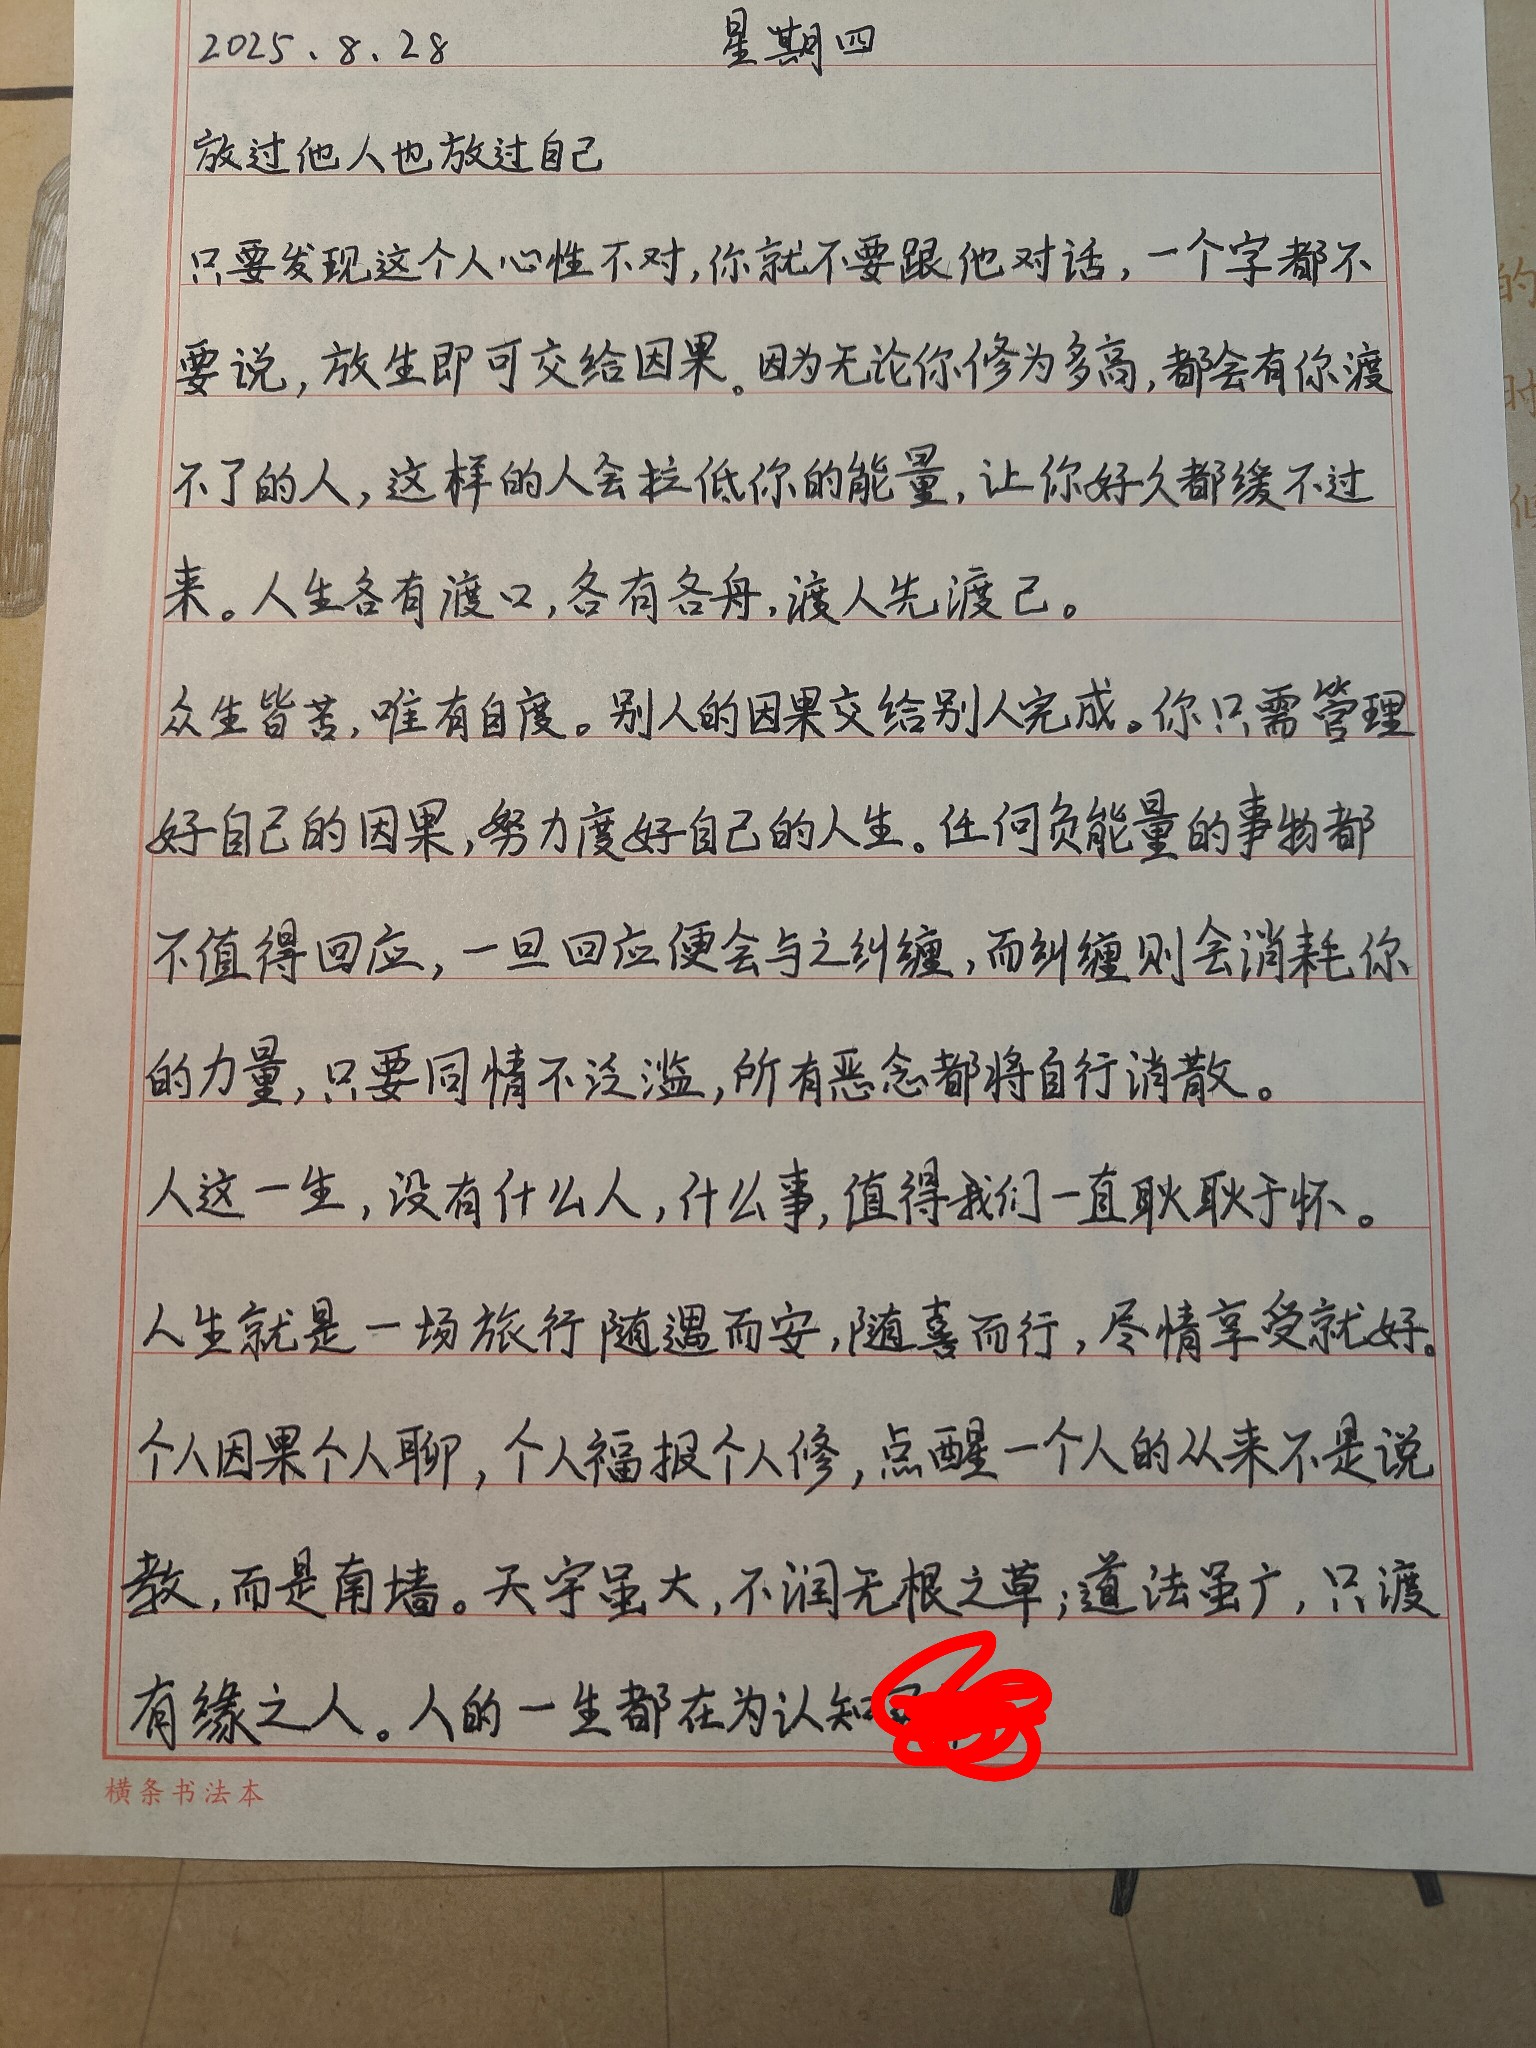 2025.8.28 星期四
放过他人也放过自己
只要发现这个人心性不对,你就不要跟他对话,一个字都不
要说,放生即可交给因果。因为无论你修为多高,都会有你渡
不了的人,这样的人会拉低你的能量,让你好久都缓不过
来。人生各有渡口,各有各舟,渡人先渡己。
众生皆苦,唯有自度。别人的因果交给别人完成。你只需管理
好自己的因果,努力度好自己的人生。任何负能量的事物都
不值得回应,一旦回应便会与之纠缠,而纠缠则会消耗你
的力量,只要同情不泛滥,所有恶念都将自行消散。
人这一生,没有什么人,什么事,值得我们一直耿耿于怀。
人生就是一场旅行随遇而安,随喜而行,尽情享受就好。
个人因果个人聊,个人福报个人修,点醒一个人的从来不是说
教,而是南墙。天宇虽大,不润无根之草;道法虽广,只渡
有缘之人。人的一生都在为认知
横条书法本
的
时
候